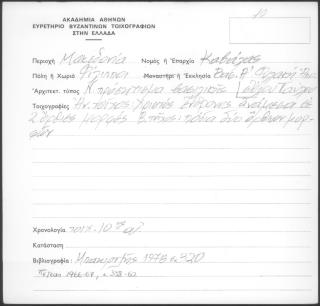 10
ΑΚΑΔΗΜΙΑ ΑΘΗΝΩΝ
ΕΥΡΕΤΗΡΙΟ ΒΥΖΑΝΤΙΝΩΝ ΤΟΙΧΟΓΡΑΦΙΩΝ
ΣΤΗΝ ΕΛΛΑΔΑ
Περιοχή Μακεδονία Νομός ή Επαρχία Καβάλας
Πόλη ή Χωριό Φίλιπποι Μοναστήρι ή Εκκλησία Βασ. Α'
Αρχιτεκτ. τύπος Ν πρόσκτισμα βασιλικής
Τοιχογραφίες Αν. τοίχος Χριστός ένθρονος ανάμεσα σε
2 όρθιες μορφές. Β. τοίχος: πόδια δύο όρθιων μορ-
φών
Χρονολογία 10
Κατάσταση
Βιβλιογραφία: 1978 σ. 320
1966-67